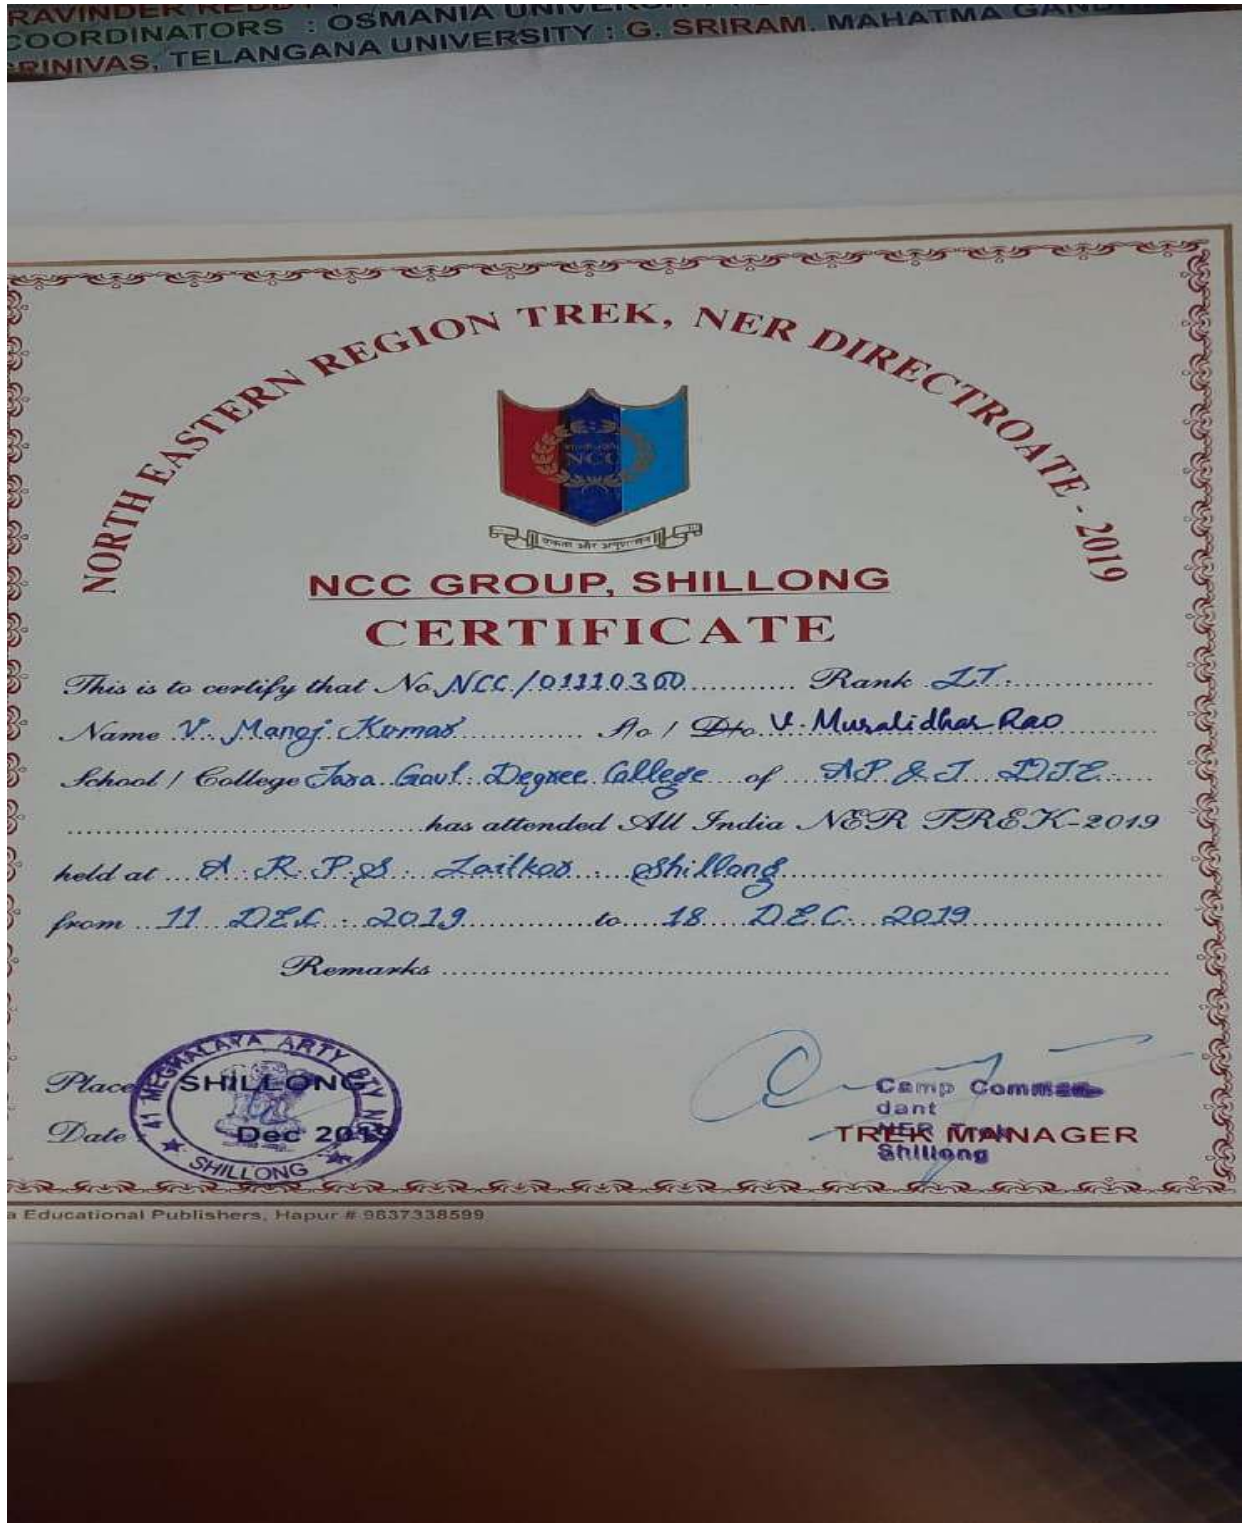 RAVINDER REDDY
COORDINATORS : OSMANIA UNIVERSITY
SRINIVAS, TELANGANA UNIVERSITY : G. SRIRAM, MAHATMA GANDH
NORTH EASTERN REGION TREK, NER DIRECTROATE - 2019
NCC
एकता और अनुशासन
NCC GROUP, SHILLONG
CERTIFICATE
This is to certify that No. NCC/01110300 Rank LT.
Name V. Manoj Kumar S/o / D/o V. Muralidhar Rao
School / College Tara Govt. Degree College of AP & T DTE.
has attended All India NER TREK-2019
held at A. R. P. S Laitkor Shillong
from 11 DEC. 2019 to 18 DEC. 2019
Remarks
41 MEGHALAYA ARTY BTY NCC
Place SHILLONG
Camp Comman
dant
Date Dec 2019
NER Trek
TREK MANAGER
SHILLONG
Shillong
a Educational Publishers, Hapur # 9837338599